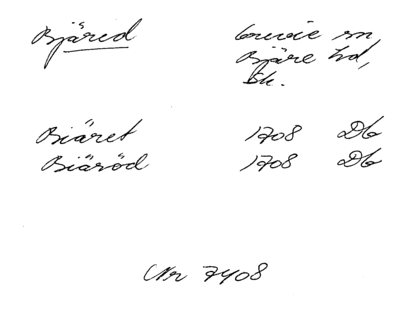 Bjäred
Grevie sn,
Bjäre hd,
Sk.
Biäret 1708 Db
Biäröd 1708 Db
Nr 7408